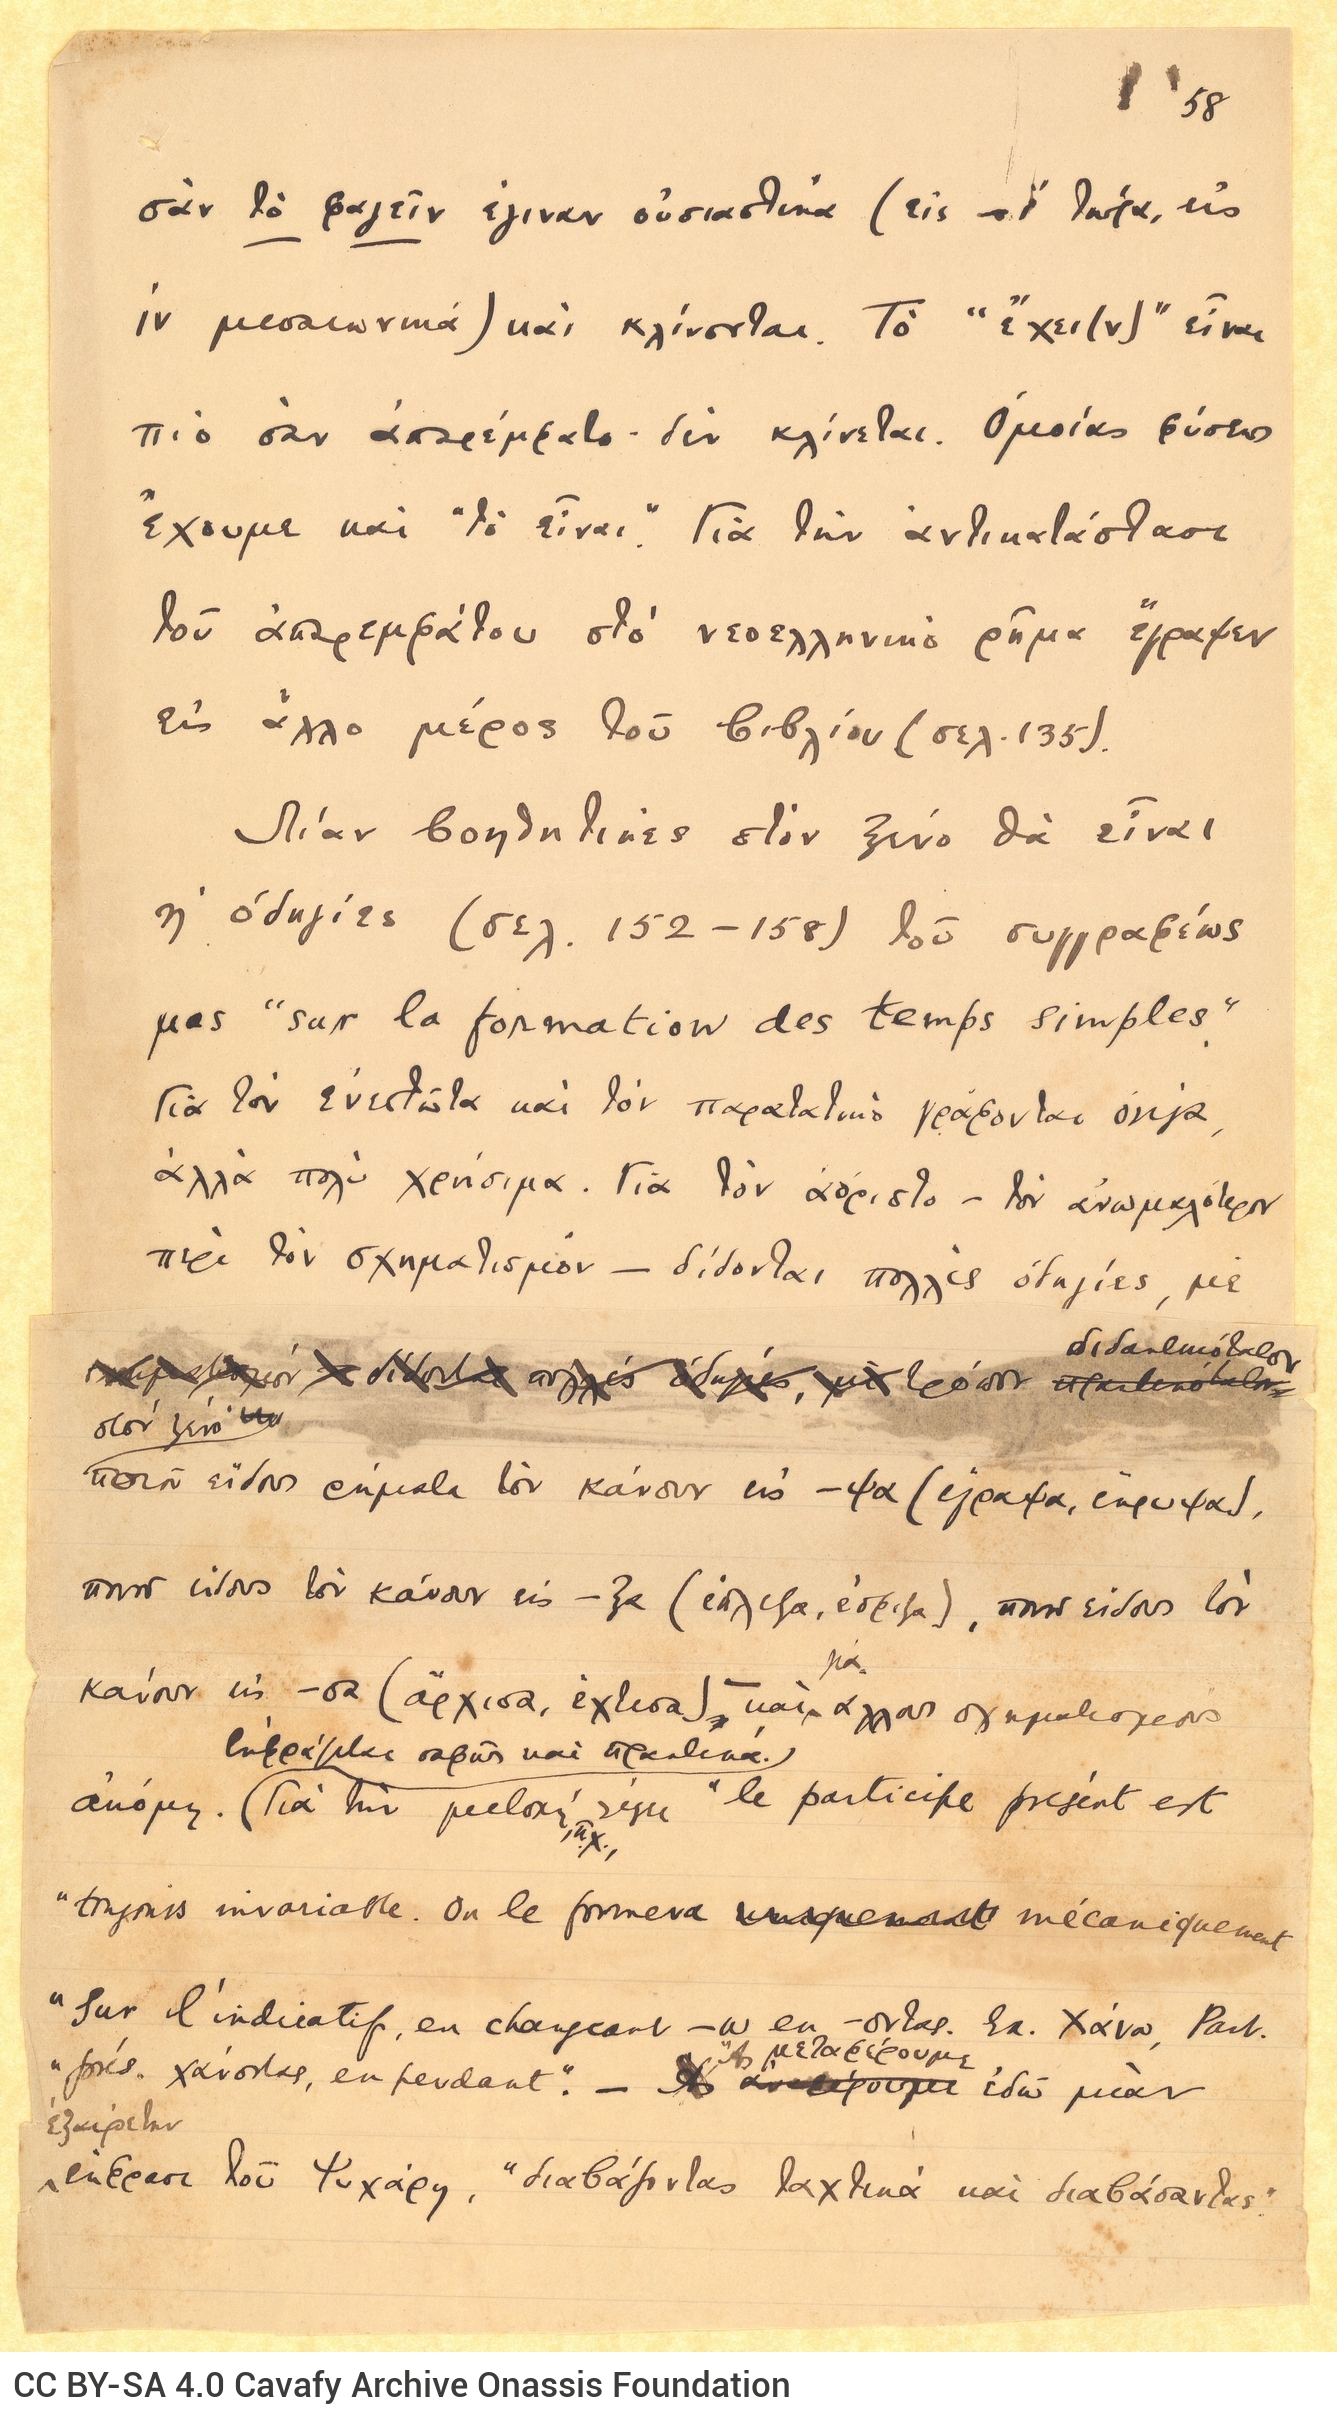 58
σὰν τὸ φαγεῖν ἔγιναν οὐσιαστικὰ (εἰς -ί τώρα, εἰς
ίν μεσαιωνικά) καὶ κλίνονται. Τὸ "ἔχει(ν)" εἶναι
πιὸ σὰν ἀπαρέμφατο· δὲν κλίνεται. Ὁμοίας φύσεως
ἔχουμε καὶ "τὸ εἶναι". Γιὰ τὴν ἀντικατάστασι
τοῦ ἀπαρεμφάτου στὸ νεοελληνικὸ ρῆμα ἔγραψεν
εἰς ἄλλο μέρος τοῦ βιβλίου (σελ. 135).
Λίαν βοηθητικὲς στὸν ξένο θὰ εἶναι
ἡ ὁδηγίες (σελ. 152-158) τοῦ συγγραφέως
μας "sur la formation des temps simples".
Γιὰ τὸν ἐνεστῶτα καὶ τὸν παρατατικὸ γράφονται ὀλίγα,
ἀλλὰ πολὺ χρήσιμα. Γιὰ τὸν ἀόριστο – τὸν ἀνωμαλότερον
περὶ τὸν σχηματισμὸν – δίδονται πολλὲς ὁδηγίες, μὲ
διδακτικότατον
σχηματισμόν – δίδονται πολλὲς ὁδηγίες, μὲ τρόπον πρακτικότατον
στὸν ξένο
ποιοῦ εἴδους ρήματα τὸν κάνουν εἰς -ψα (ἔγραψα, ἔκρυψα),
ποιοῦ εἴδους τὸν κάνουν εἰς -ξα (ἔπλεξα, ἔσφιξα), ποιοῦ εἴδους τὸν
γιὰ
κάνουν εἰς -σα (ἄρχισα, ἔχτισα), – καὶ ἄλλους σχηματισμοὺς
ἐκφράζεται σαφῶς καὶ πρακτικά.
ἀκόμη. (Γιὰ τὴν μετοχή λέγει "le participe présent est
π.χ.,
"toujours invariable. On le formera uniquement mécaniquement
"sur l'indicatif, en changeant -ω en -οντας. Ex. χάνω, Part.
"Ἂς μεταφέρουμε
"prés. χάνοντας, en perdant". – Ἂς ἀναφέρουμε ἐδῶ μιὰν
ἐξαίρετην
ἔκφρασι τοῦ Ψυχάρη, "διαβάζοντας ταχτικὰ καὶ διαβάσαντας".
CC BY-SA 4.0 Cavafy Archive Onassis Foundation